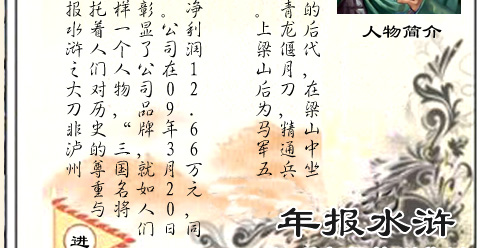 人物简介
的后代，在梁山中坐
青龙偃月刀，精通兵
。上梁山后为马军五
净利润12.66万元，同
。公司在09年3月20日
彰显了公司品牌，就如人们
样一个人物，“三国名将
托着人们对历史的尊重与
报水浒之大刀非泸州
年报水浒
进